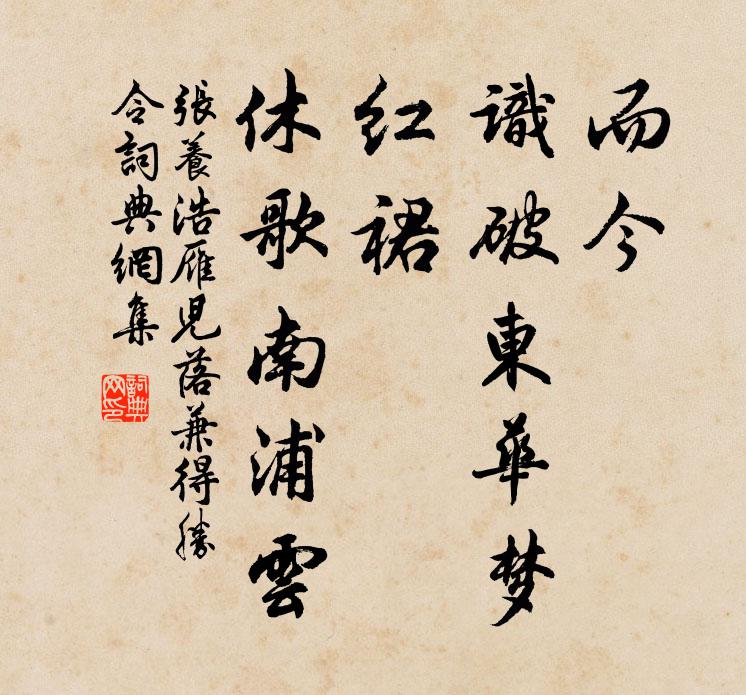 而今
識破東華梦
红裙
休歌南浦雲
張養浩雁児落兼得勝
令詞典網集
詞典
网印